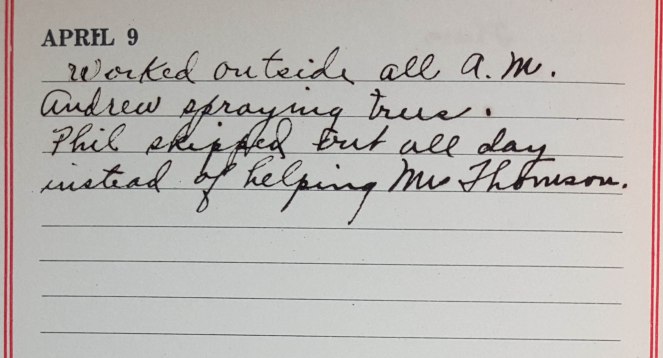 APRIL 9
Worked outside all A.M.
Andrew spraying trees.
Phil skipped out all day
instead of helping Mrs Thomson.